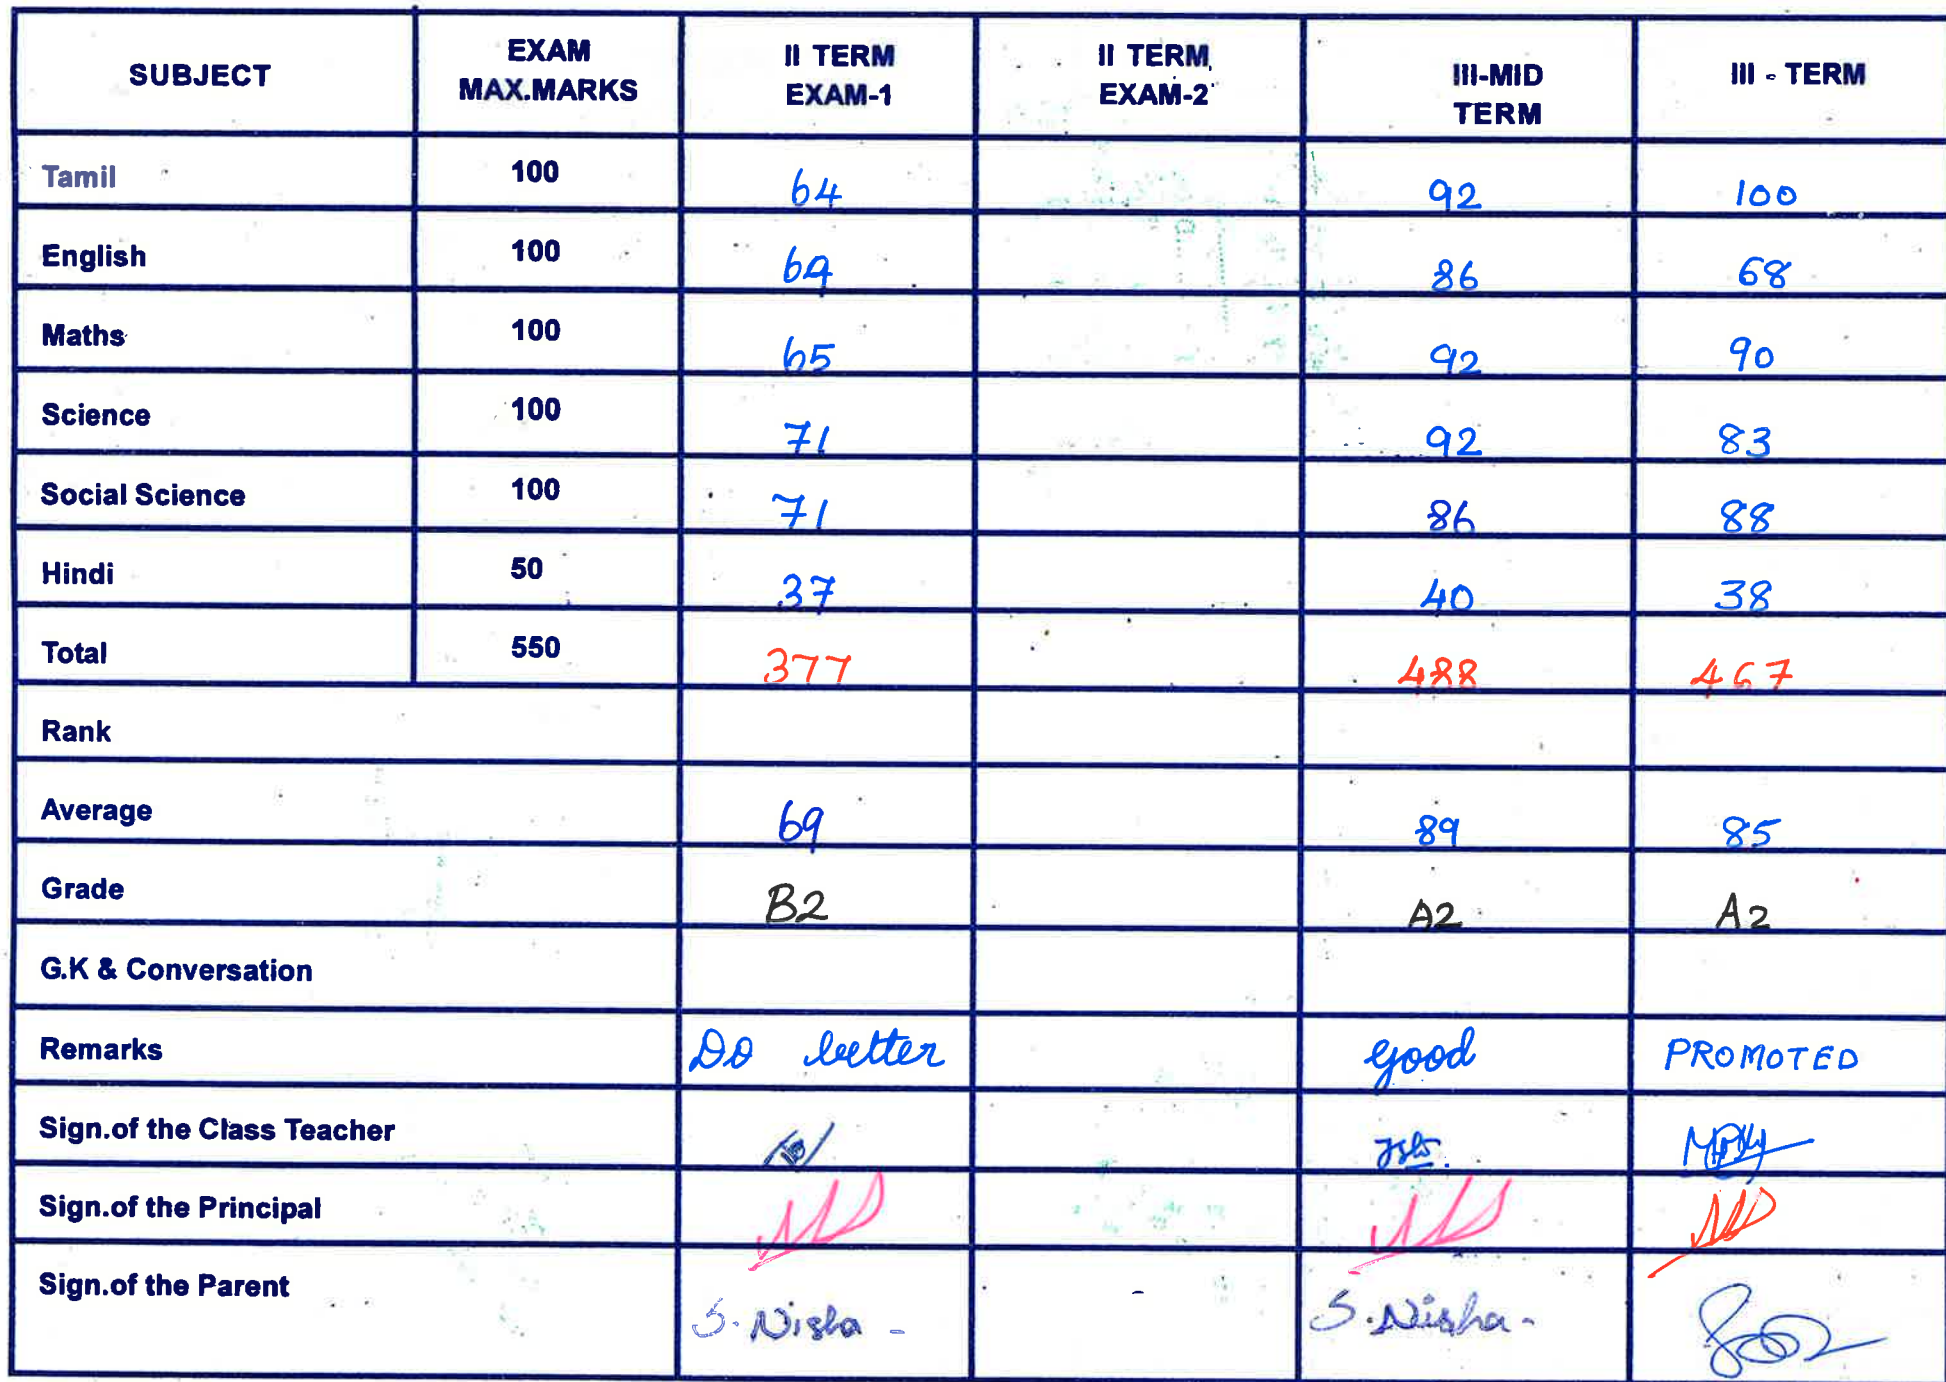 SUBJECT EXAM MAX.MARKS II TERM EXAM-1 II TERM EXAM-2 III-MID TERM III - TERM
Tamil 100 64 92 100
English 100 69 86 68
Maths 100 65 92 90
Science 100 71 92 83
Social Science 100 71 86 88
Hindi 50 37 40 38
Total 550 377 488 467
Rank
Average 69 89 85
Grade B2 A2 A2
G.K & Conversation
Remarks Do better good PROMOTED
Sign.of the Class Teacher
Sign.of the Principal
Sign.of the Parent S. Nisha - S. Nisha -